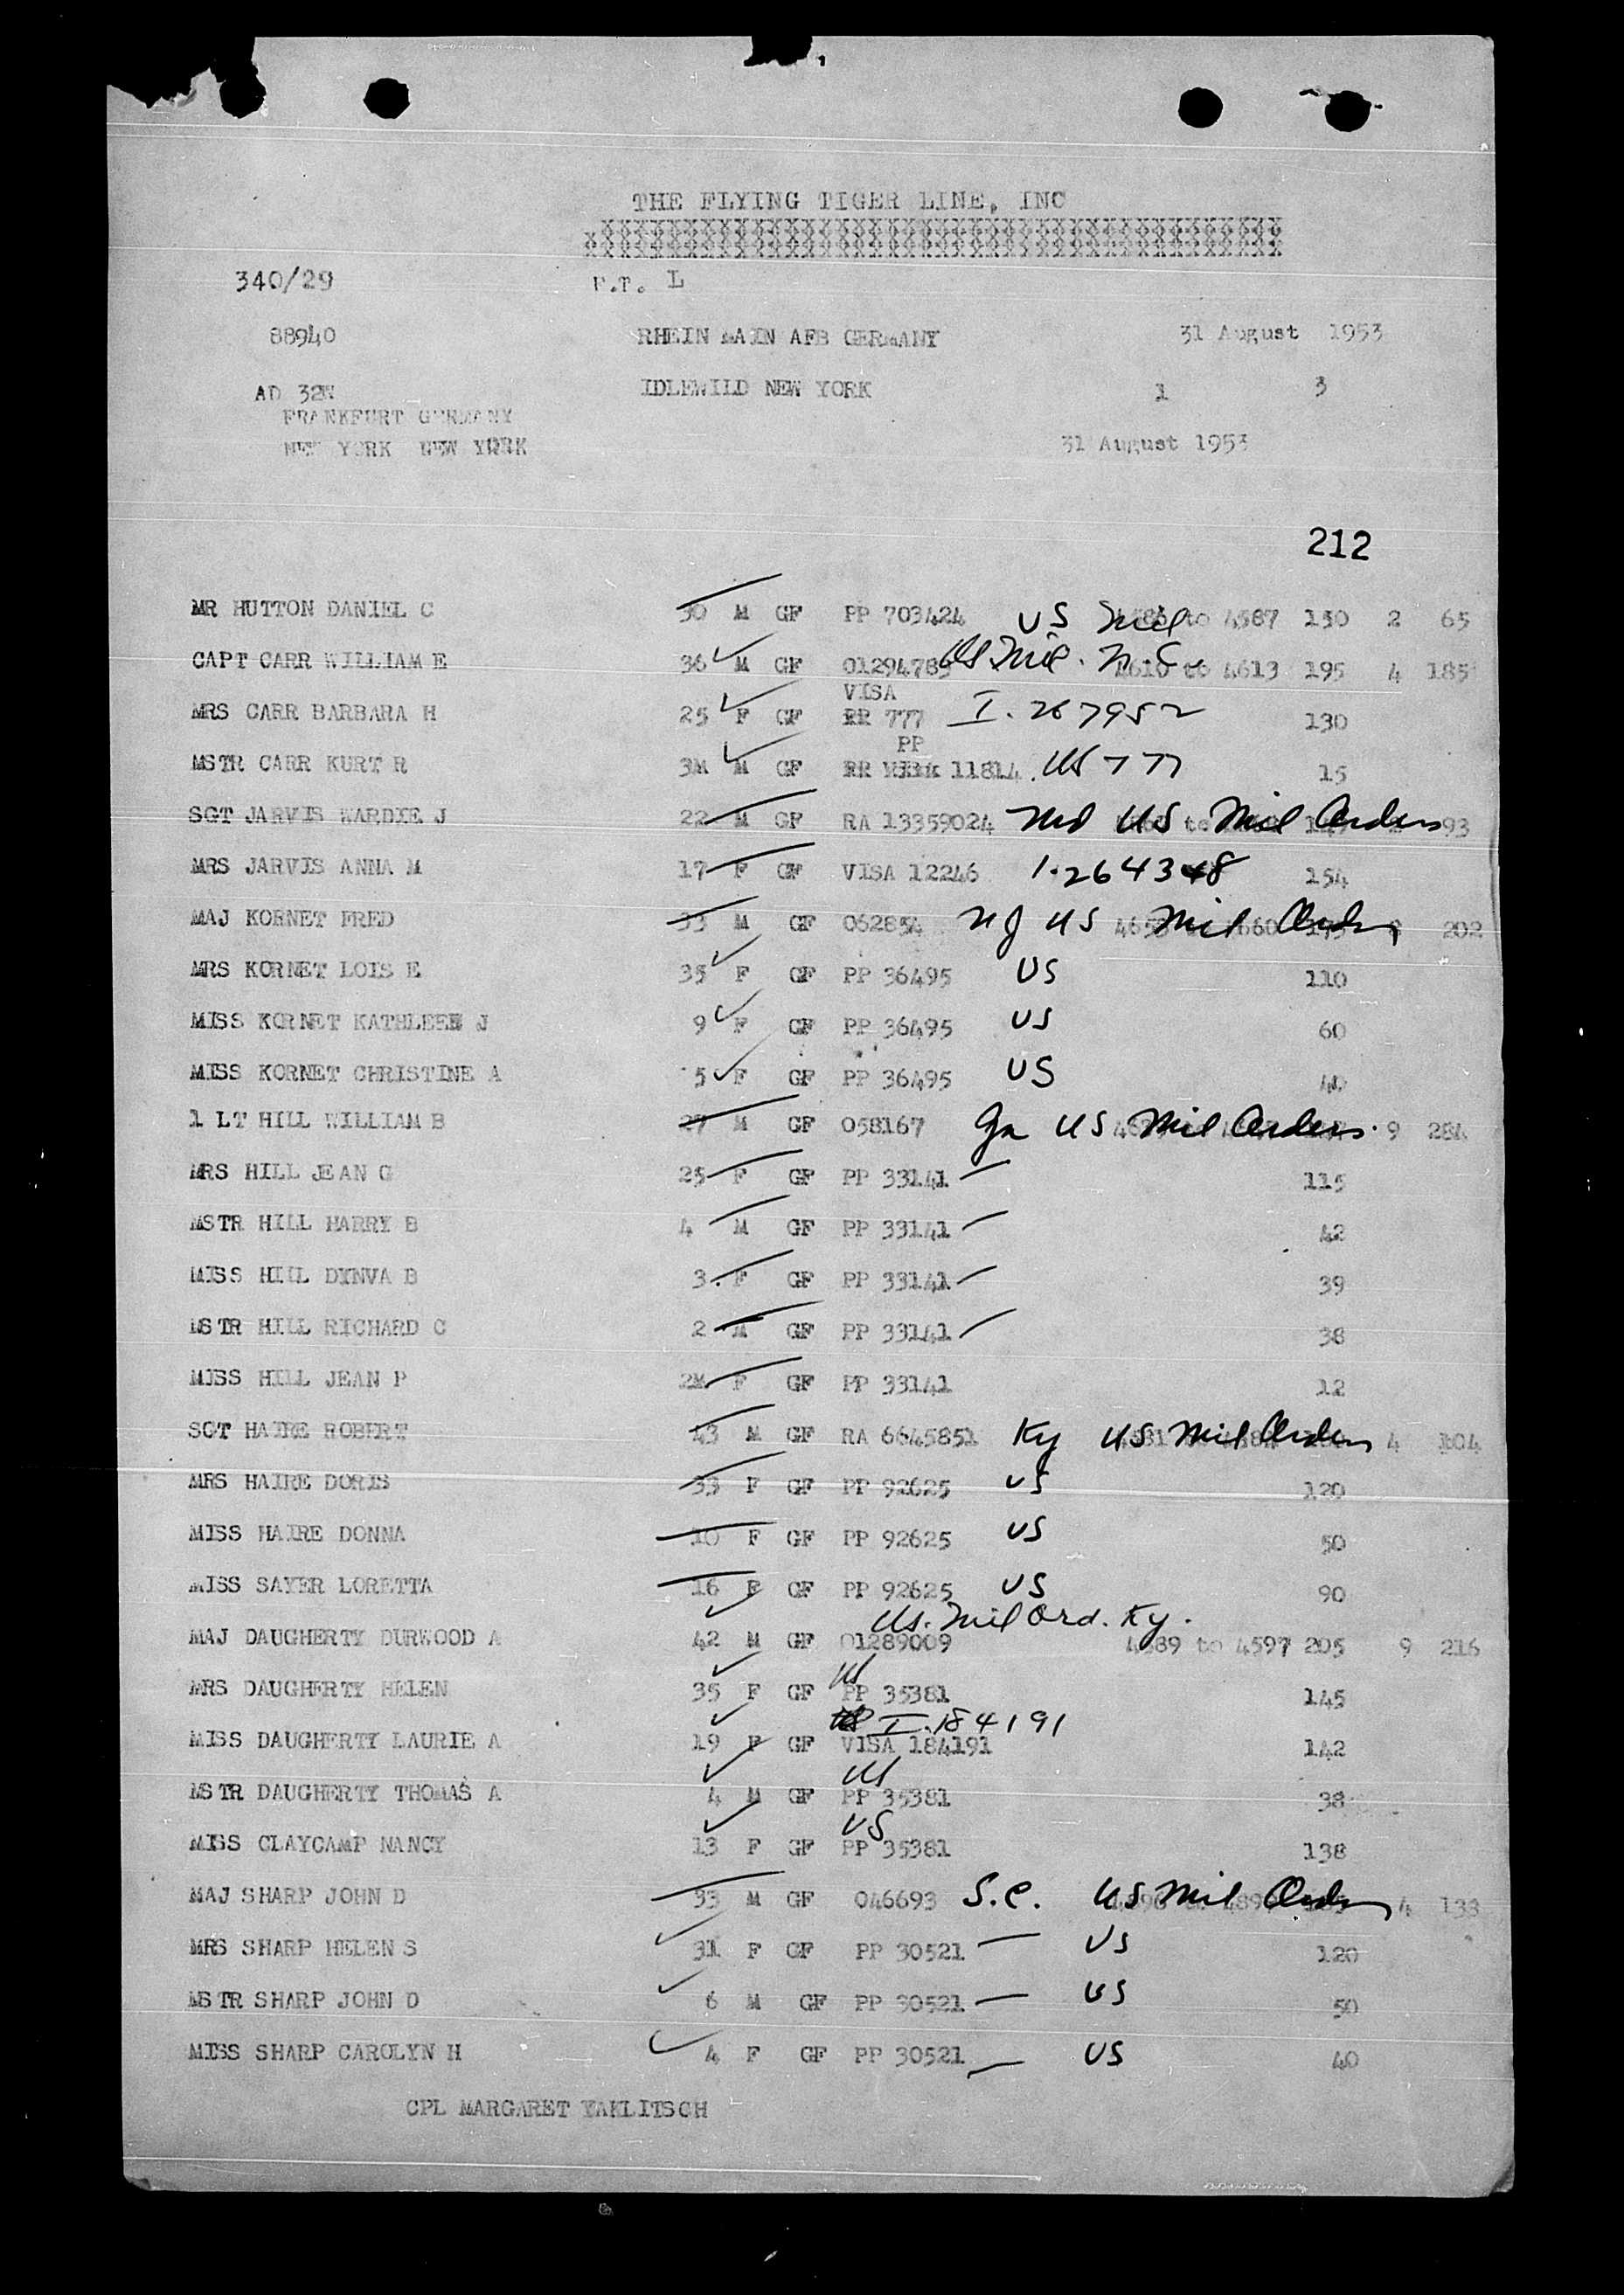 THE FLYING TIGER LINE, INC
340/29 F.T. L
88940 RHEIN MAIN AFB GERMANY 31 August 1953
AD 32W IDLEWILD NEW YORK 1 3
FRANKFURT GERMANY
NEW YORK NEW YORK 31 August 1953
212
MR HUTTON DANIEL C 30 M GF PP 703424 US Mil to 4587 150 2 65
CAPT CARR WILLIAM E 36 M GF 01294785 US Mil. N.C. 4610 to 4613 195 4 185
VISA
MRS CARR BARBARA H 25 F GF RR 777 I. 267952 130
PP
MSTR CARR KURT R 3M M GF RR 11814 US 777 15
SGT JARVIS WARDIE J 22 M GF RA 13359024 Md US Mil Orders 93
MRS JARVIS ANNA M 17 F GF VISA 12246 1.264348 154
MAJ KORNET FRED 33 M GF 062854 NJ US Mil Orders 202
MRS KORNET LOIS E 35 F GF PP 36495 US 110
MISS KORNET KATHLEEN J 9 F GF PP 36495 US 60
MISS KORNET CHRISTINE A 5 F GF PP 36495 US 40
1 LT HILL WILLIAM B 27 M GF 058167 Ga US Mil Orders. 9 284
MRS HILL JEAN G 25 F GF PP 33141 115
MSTR HILL HARRY B 4 M GF PP 33141 42
MISS HILL DYNVA B 3 F GF PP 33141 39
MSTR HILL RICHARD C 2 M GF PP 33141 38
MISS HILL JEAN P 2M F GF PP 33141 12
SGT HAIRE ROBERT 43 M GF RA 6645851 Ky US Mil Orders 4 104
MRS HAIRE DORIS 33 F GF PP 92625 US 120
MISS HAIRE DONNA 10 F GF PP 92625 US 50
MISS SAYER LORETTA 16 F GF PP 92625 US 90
US. Mil Ord. Ky.
MAJ DAUGHERTY DURWOOD A 42 M GF 01289009 4589 to 4597 205 9 216
US
MRS DAUGHERTY HELEN 35 F GF PP 35381 145
I.184191
MISS DAUGHERTY LAURIE A 19 F GF VISA 184191 142
US
MSTR DAUGHERTY THOMAS A 4 M GF PP 35381 38
US
MISS CLAYCAMP NANCY 13 F GF PP 35381 138
MAJ SHARP JOHN D 33 M GF 046693 S.C. US Mil Orders 4 133
MRS SHARP HELEN S 31 F GF PP 30521 US 120
MSTR SHARP JOHN D 6 M GF PP 30521 US 50
MISS SHARP CAROLYN H 4 F GF PP 30521 US 40
CPL MARGARET YAKLITSCH